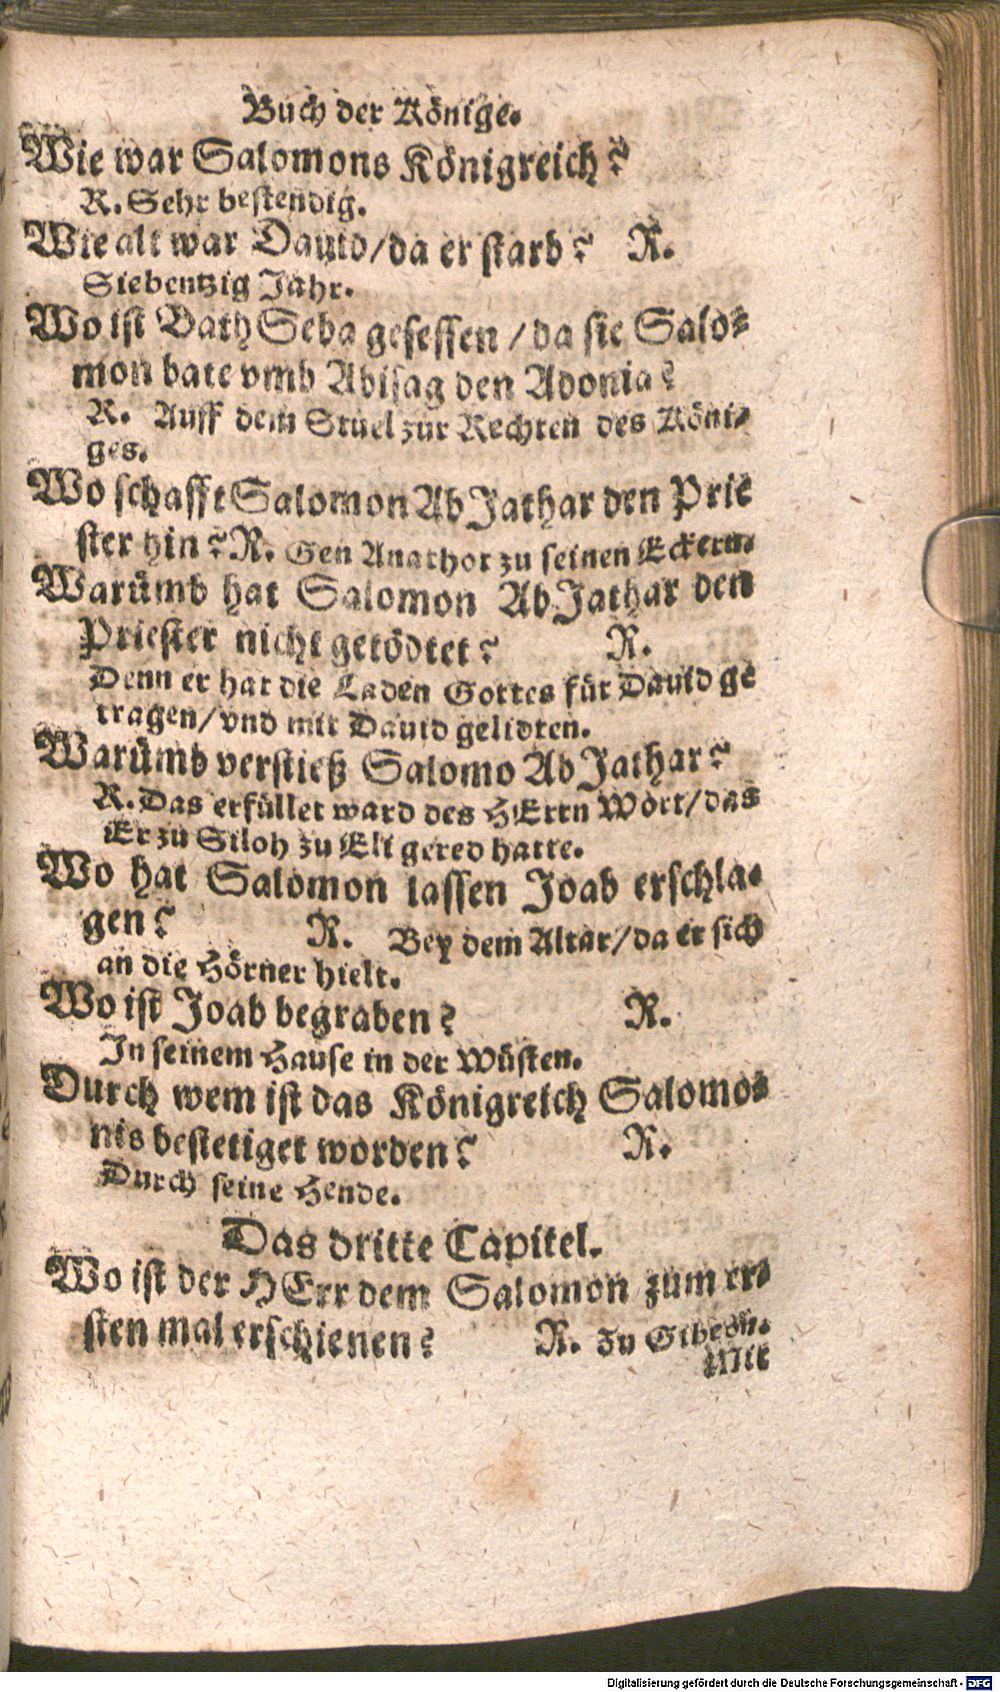 Buch der Könige.
Wie war Salomons Königreich?
R. Sehr bestendig.
Wie alt war Dauid/da er starb? R.
Siebentzig Jahr.
Wo ist Bath Seba gesessen/da sie Salo-
mon bate vmb Abisag den Adonia?
R. Auff dem Stuel zur Rechten des Köni-
ges.
Wo schafft Salomon AbJathar den Prie
ster hin? R. Gen Anathot zu seinen Eckern.
Warümb hat Salomon AbJathar den
Priester nicht getödtet? R.
Denn er hat die Laden Gottes für Dauid ge
tragen/vnd mit Dauid gelidten.
Warümb verstieß Salomo AbJathar?
R. Das erfüllet ward des HErrn Wort/das
Er zu Siloh zu Eli gered hatte.
Wo hat Salomon lassen Joab erschla-
gen? R. Bey dem Altar/da er sich
an die Hörner hielt.
Wo ist Joab begraben? R.
In seinem Hause in der Wüsten.
Durch wem ist das Königreich Salomo-
nis bestetiget worden? R.
Durch seine Hende.
Das dritte Capitel.
Wo ist der HErr dem Salomon zum er-
sten mal erschienen? R. Zu Gibeon.
Mit
Digitalisierung gefördert durch die Deutsche Forschungsgemeinschaft - DFG